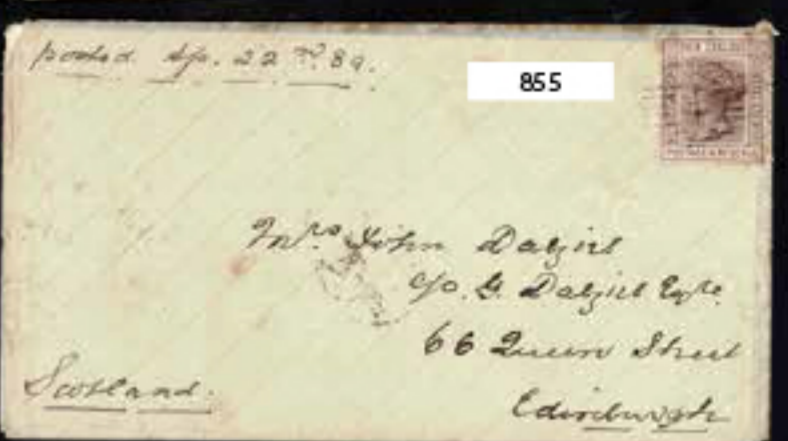 posted Sep. 22nd. 89.
855
Mrs John Dalziel
c/o. G. Dalziel Esqre.
66 Queen Street
Edinburgh
Scotland.